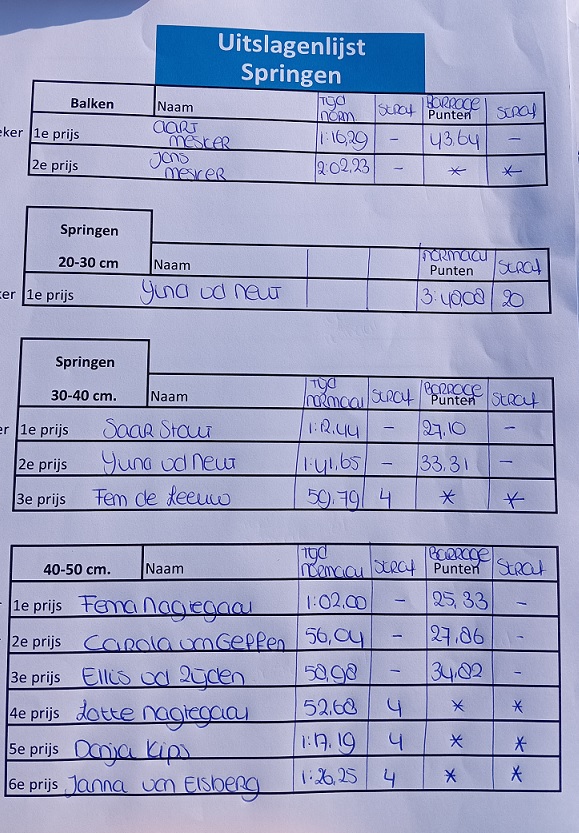 Uitslagenlijst
Springen
Balken Naam Tijd norm Straf Barrage Punten Straf
eker 1e prijs Aart Mesker 1:16,29 - 43,64 -
2e prijs Jens Mesker 2:02,23 - * *
Springen
20-30 cm Naam normaal Punten Straf
ker 1e prijs Yuna vd Neut 3:40,08 20
Springen
30-40 cm. Naam Tijd normaal Straf Barrage Punten Straf
er 1e prijs Saar Stout 1:12,44 - 27,10 -
2e prijs Yuna vd Neut 1:41,65 - 33,31 -
3e prijs Fem de Leeuw 59,79 4 * *
40-50 cm. Naam Tijd normaal Straf Barrage Punten Straf
1e prijs Fema Nagtegaal 1:02,00 - 25,33 -
2e prijs Carola van Geffen 56,04 - 27,86 -
3e prijs Ellis vd Zijden 58,98 - 34,82 -
4e prijs Lotte Nagtegaal 52,68 4 * *
5e prijs Danja Kips 1:17,19 4 * *
6e prijs Janna van Elsberg 1:26,25 4 * *